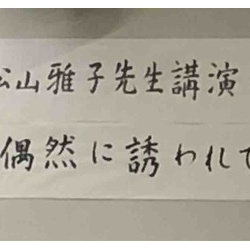 松山雅子先生講演
偶然に誘われて